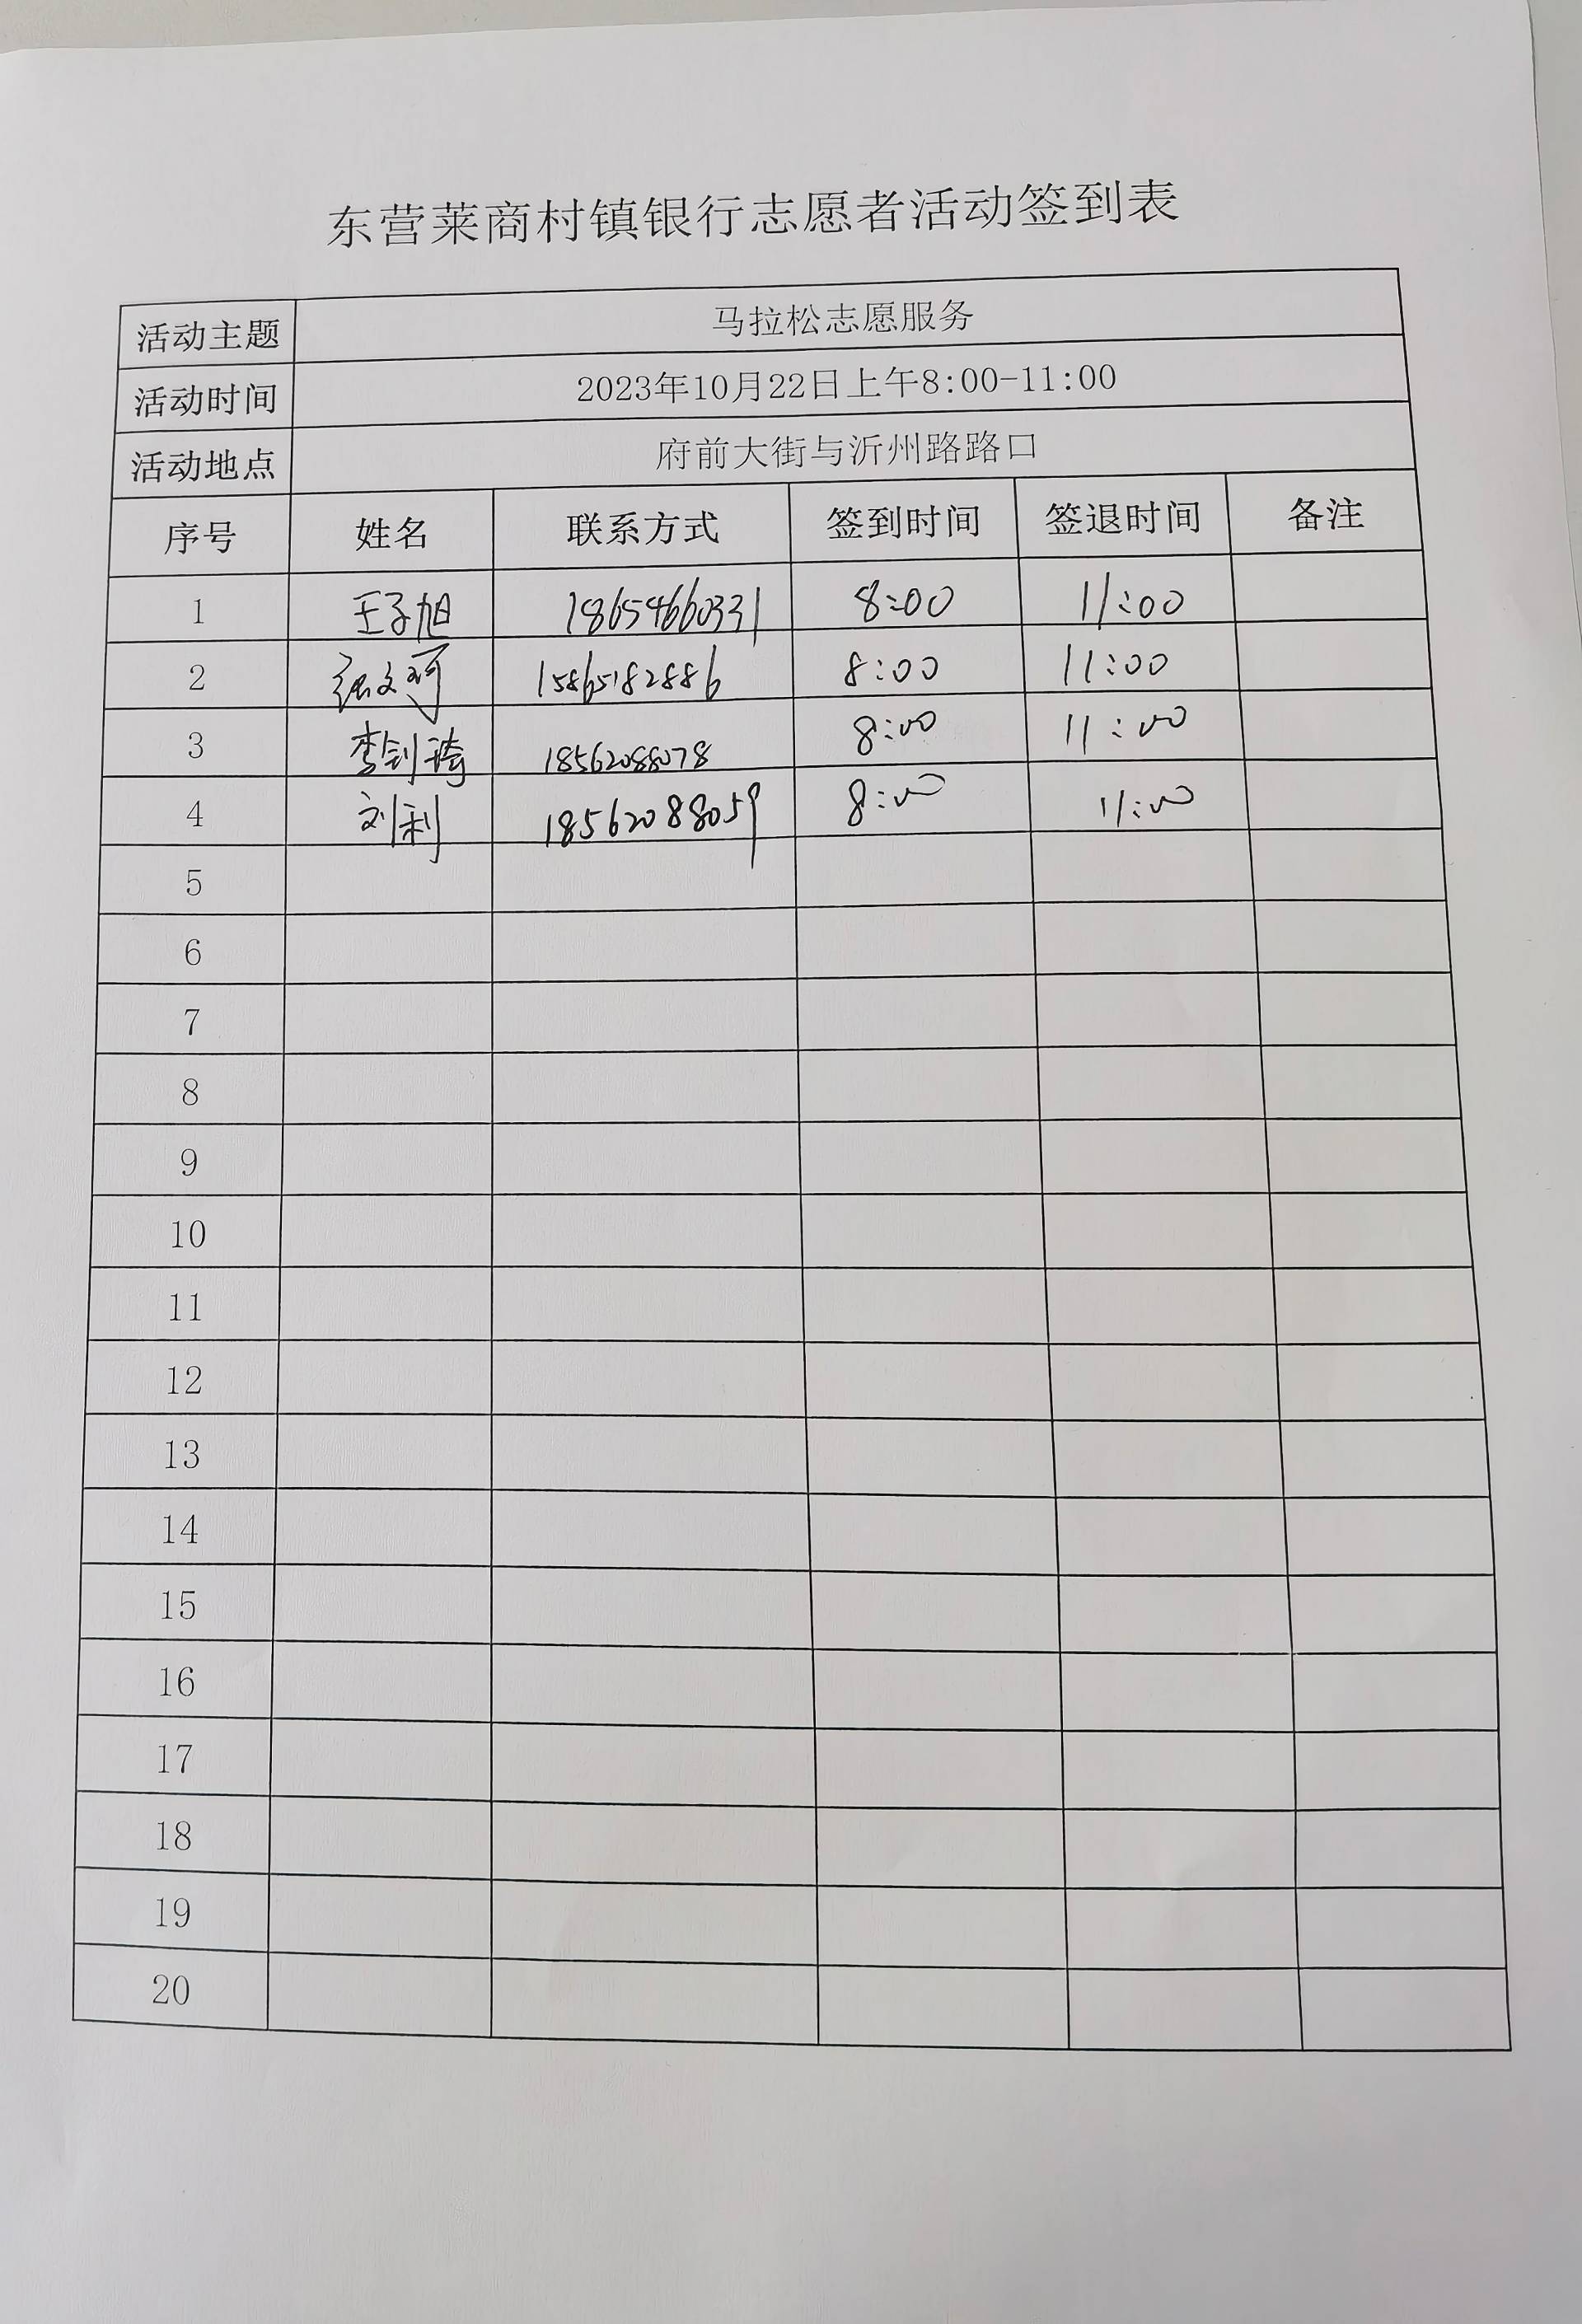 东营莱商村镇银行志愿者活动签到表
活动主题 马拉松志愿服务
活动时间 2023年10月22日上午8:00-11:00
活动地点 府前大街与沂州路路口
序号 姓名 联系方式 签到时间 签退时间 备注
1 王子旭 18654660331 8:00 11:00
2 张文珂 15865182886 8:00 11:00
3 李钊琦 18562088078 8:00 11:00
4 刘利 18562088059 8:00 11:00
5
6
7
8
9
10
11
12
13
14
15
16
17
18
19
20